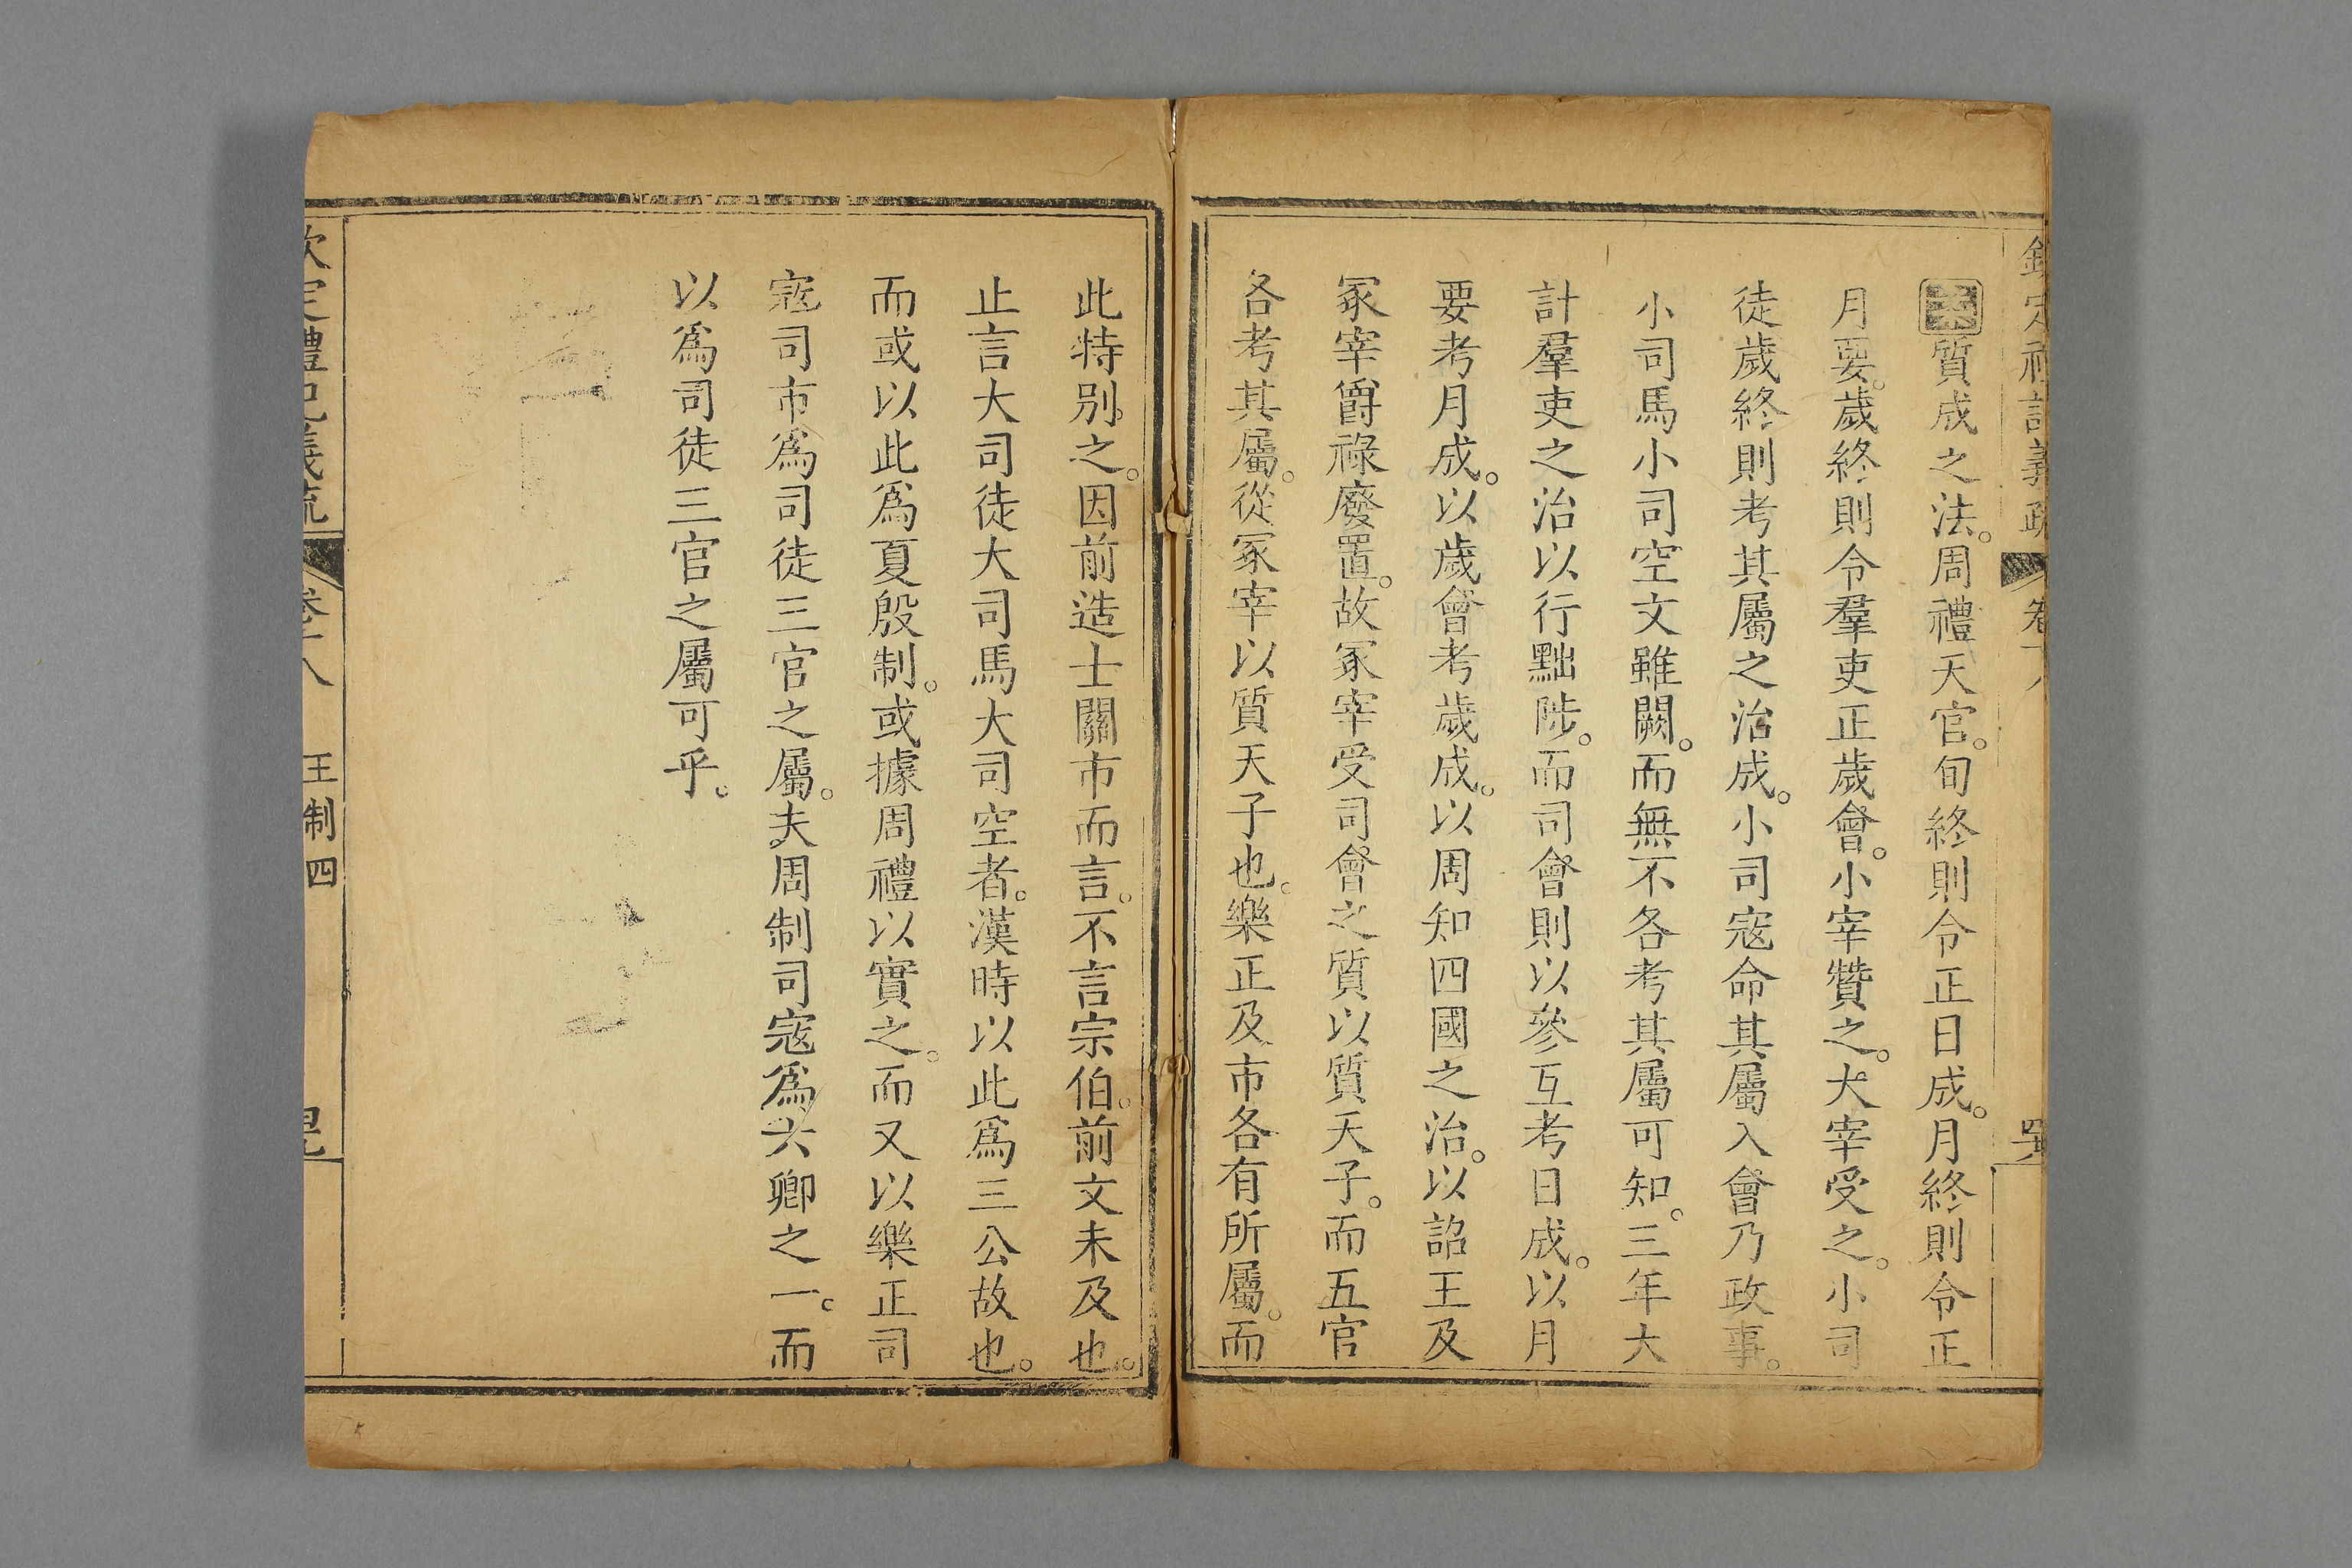 欽定禮記義疏 卷十八
質成之法。周禮天官。旬終則令正日成。月終則令正
月要。歲終則令羣吏正歲會。小宰贊之。大宰受之。小司
徒歲終則考其屬之治成。小司寇命其屬入會乃政事。
小司馬小司空文雖闕。而無不各考其屬可知。三年大
計羣吏之治以行黜陟。而司會則以參互考日成。以月
要考月成。以歲會考歲成。以周知四國之治。以詔王及
冢宰爵祿廢置。故冢宰受司會之質以質天子。而五官
各考其屬。從冢宰以質天子也。樂正及市各有所屬。而
此特别之。因前造士關市而言。不言宗伯。前文未及也。
止言大司徒大司馬大司空者。漢時以此爲三公故也。
而或以此爲夏殷制。或據周禮以實之。而又以樂正司
寇司市爲司徒三官之屬。夫周制司寇爲六卿之一。而
以爲司徒三官之屬可乎。
欽定禮記義疏 卷十八 王制四